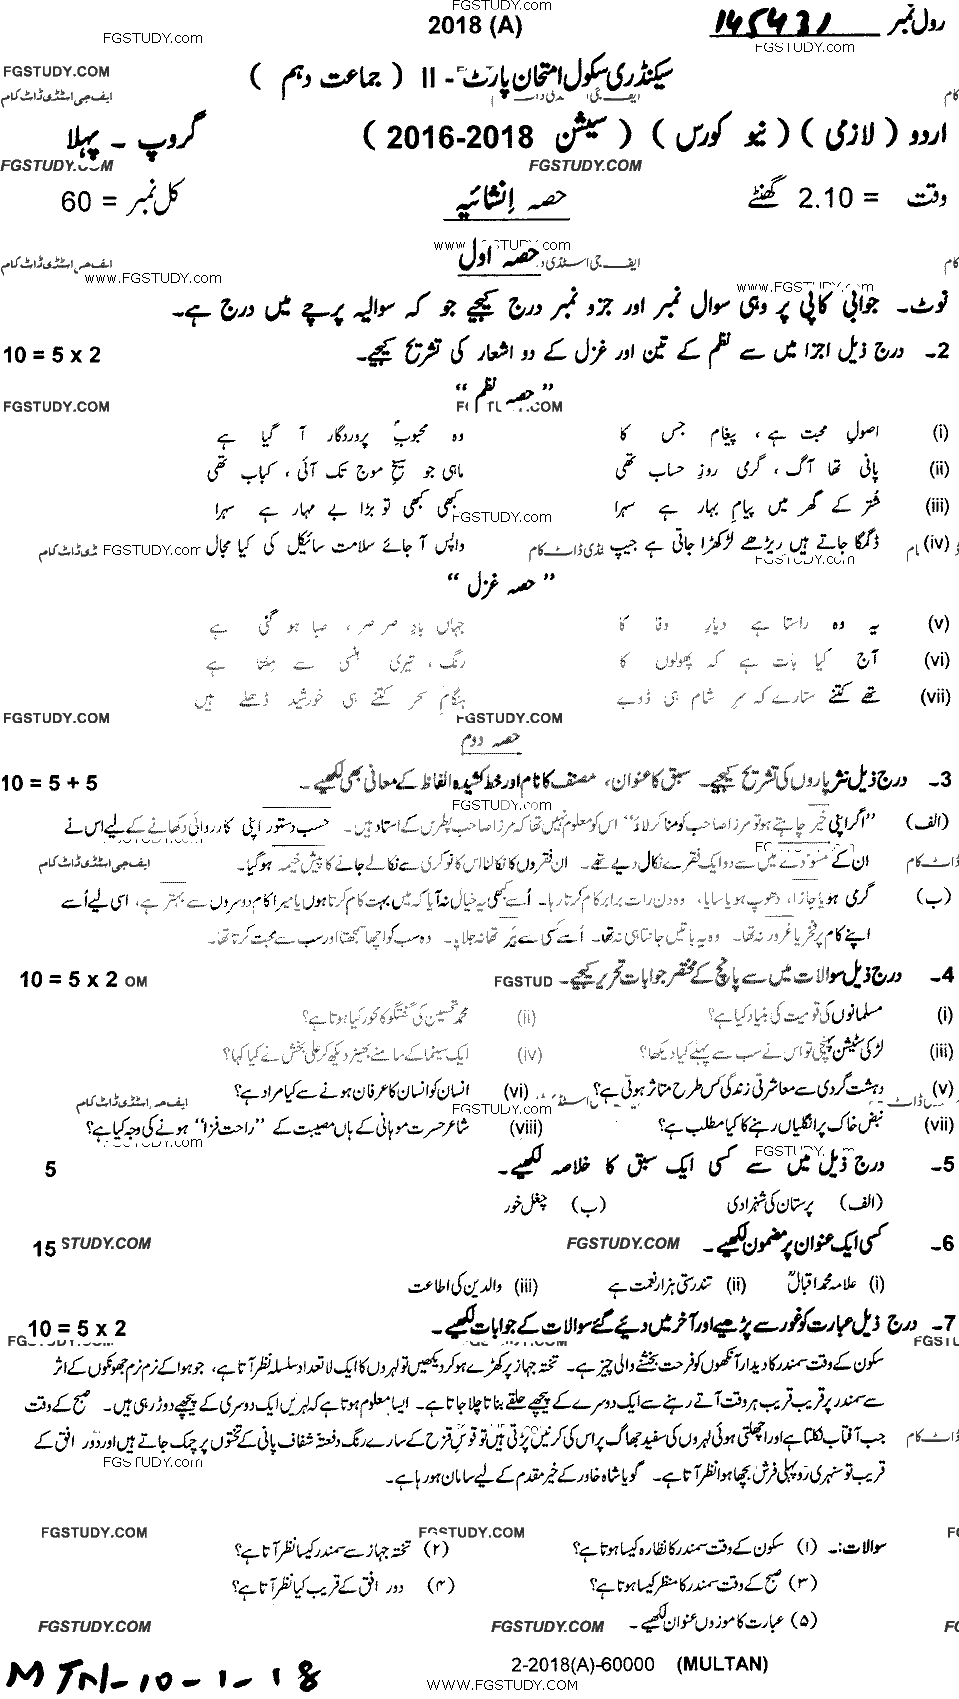 FGSTUDY.COM
2018 (A)
رول نمبر 145431
سیکنڈری سکول امتحان پارٹ - II ( جماعت دہم )
اردو ( لازمی ) ( نیو کورس ) ( سیشن 2016-2018 ) گروپ - پہلا
وقت = 2.10 گھنٹے حصہ اِنشائیہ کل نمبر = 60
حصہ اول
نوٹ۔ جوابی کاپی پر وہی سوال نمبر اور جزو نمبر درج کیجیے جو کہ سوالیہ پرچے میں درج ہے۔
2۔ درج ذیل اجزا میں سے نظم کے تین اور غزل کے دو اشعار کی تشریح کیجیے۔ 10 = 5 x 2
"حصہ نظم"
(i) اصولِ محبت ہے ، پیغام جس کا وہ محبوبِ پروردگار آ گیا ہے
(ii) پانی تھا آگ ، گرمی روزِ حساب تھی ماہی جو سیخِ موج تک آئی ، کباب تھی
(iii) شتر کے گھر میں پیامِ بہار ہے سہرا کبھی کبھی تو بڑا بے مہار ہے سہرا
(iv) ڈگمگا جاتے ہیں ریڑھے لڑکھڑا جاتی ہے جیپ واپس آ جائے سلامت سائیکل کی کیا مجال
"حصہ غزل"
(v) یہ وہ راستا ہے دیارِ وفا کا جہاں بادِ صر صر ، صبا ہو گئی ہے
(vi) آج کیا بات ہے کہ پھولوں کا رنگ ، تیری ہنسی سے ملتا ہے
(vii) تھے کتنے ستارے کہ سرِ شام ہی ڈوبے ہنگامِ سحر کتنے ہی خورشید ڈھلے ہیں
حصہ دوم
3۔ درج ذیل نثر پاروں کی تشریح کیجیے۔ سبق کا عنوان، مصنف کا نام اور خط کشیدہ الفاظ کے معانی بھی لکھیے۔ 10 = 5 + 5
(الف) "اگر اپنی خیر چاہتے ہو تو مرزا صاحب کو منا کر لاؤ" اس کو معلوم نہیں تھا کہ مرزا صاحب پطرس کے استاد ہیں۔ حسب دستور اپنی کارروائی دکھانے کے لیے اس نے
ان کے مسودے میں سے دو ایک فقرے نکال دیے تھے۔ ان فقروں کا نکالنا اس کا نوکری سے نکالے جانے کا پیش خیمہ ہو گیا۔
(ب) گرمی ہو یا جاڑا، دھوپ ہو یا سایا، وہ دن رات برابر کام کرتا رہا۔ اُسے کبھی یہ خیال نہ آیا کہ میں بہت کام کرتا ہوں یا میرا کام دوسروں سے بہتر ہے، اسی لیے اُسے
اپنے کام پر فخر یا غرور نہ تھا۔ وہ یہ باتیں جانتا ہی نہ تھا۔ اُسے کسی سے بیر تھا نہ جلاپا۔ وہ سب کو اچھا سمجھتا اور سب سے محبت کرتا تھا۔
4۔ درج ذیل سوالات میں سے پانچ کے مختصر جوابات تحریر کیجیے۔ 10 = 5 x 2
(i) مسلمانوں کی قومیت کی بنیاد کیا ہے؟ (ii) محمد حسین کی گفتگو کا محور کیا ہوتا ہے؟
(iii) لڑکی سٹیشن پہنچی تو اس نے سب سے پہلے کیا دیکھا؟ (iv) ایک سینما کے سامنے بھیڑ دیکھ کر علی بخش نے کیا کہا؟
(v) دہشت گردی سے معاشرتی زندگی کس طرح متاثر ہوتی ہے؟ (vi) انسان کو انسان کا عرفان ہونے سے کیا مراد ہے؟
(vii) نبضِ خاک پر انگلیاں رہنے کا کیا مطلب ہے؟ (viii) شاعر حسرت موہانی کے ہاں مصیبت کے "راحت فزا" ہونے کی وجہ کیا ہے؟
5۔ درج ذیل میں سے کسی ایک سبق کا خلاصہ لکھیے۔ 5
(الف) پرستان کی شہزادی (ب) چغل خور
6۔ کسی ایک عنوان پر مضمون لکھیے۔ 15
(i) علامہ محمد اقبالؒ (ii) تندرستی ہزار نعمت ہے (iii) والدین کی اطاعت
7۔ درج ذیل عبارت کو غور سے پڑھیے اور آخر میں دیے گئے سوالات کے جوابات لکھیے۔ 10 = 5 x 2
سکون کے وقت سمندر کا دیدار آنکھوں کو فرحت بخشنے والی چیز ہے۔ تختہ جہاز پر کھڑے ہو کر دیکھیں تو لہروں کا ایک لا تعداد سلسلہ نظر آتا ہے، جو ہوا کے نرم نرم جھونکوں کے اثر
سے سمندر پر قریب قریب ہر وقت آتے رہنے سے ایک دوسرے کے پیچھے حلقے بناتا چلا جاتا ہے۔ ایسا معلوم ہوتا ہے کہ لہریں ایک دوسری کے پیچھے دوڑ رہی ہیں۔ صبح کے وقت
جب آفتاب نکلتا ہے اور اچھلتی ہوئی لہروں کی سفید جھاگ پر اس کی کرنیں پڑتی ہیں تو قوسِ قزح کے سارے رنگ دفعتہ شفاف پانی کے تختوں پر چمک جاتے ہیں اور دُور افق کے
قریب تو سنہری روپہلی فرش بچھا ہوا نظر آتا ہے۔ گویا شاہ خاور کے خیر مقدم کے لیے سامان ہو رہا ہے۔
سوالات:۔ (۱) سکون کے وقت سمندر کا نظارہ کیسا ہوتا ہے؟ (۲) تختہ جہاز سے سمندر کیسا نظر آتا ہے؟
(۳) صبح کے وقت سمندر کا منظر کیسا ہوتا ہے؟ (۴) دور افق کے قریب کیا نظر آتا ہے؟
(۵) عبارت کا موزوں عنوان لکھیے۔
2-2018(A)-60000 (MULTAN)
MTN-10-1-18
WWW.FGSTUDY.COM